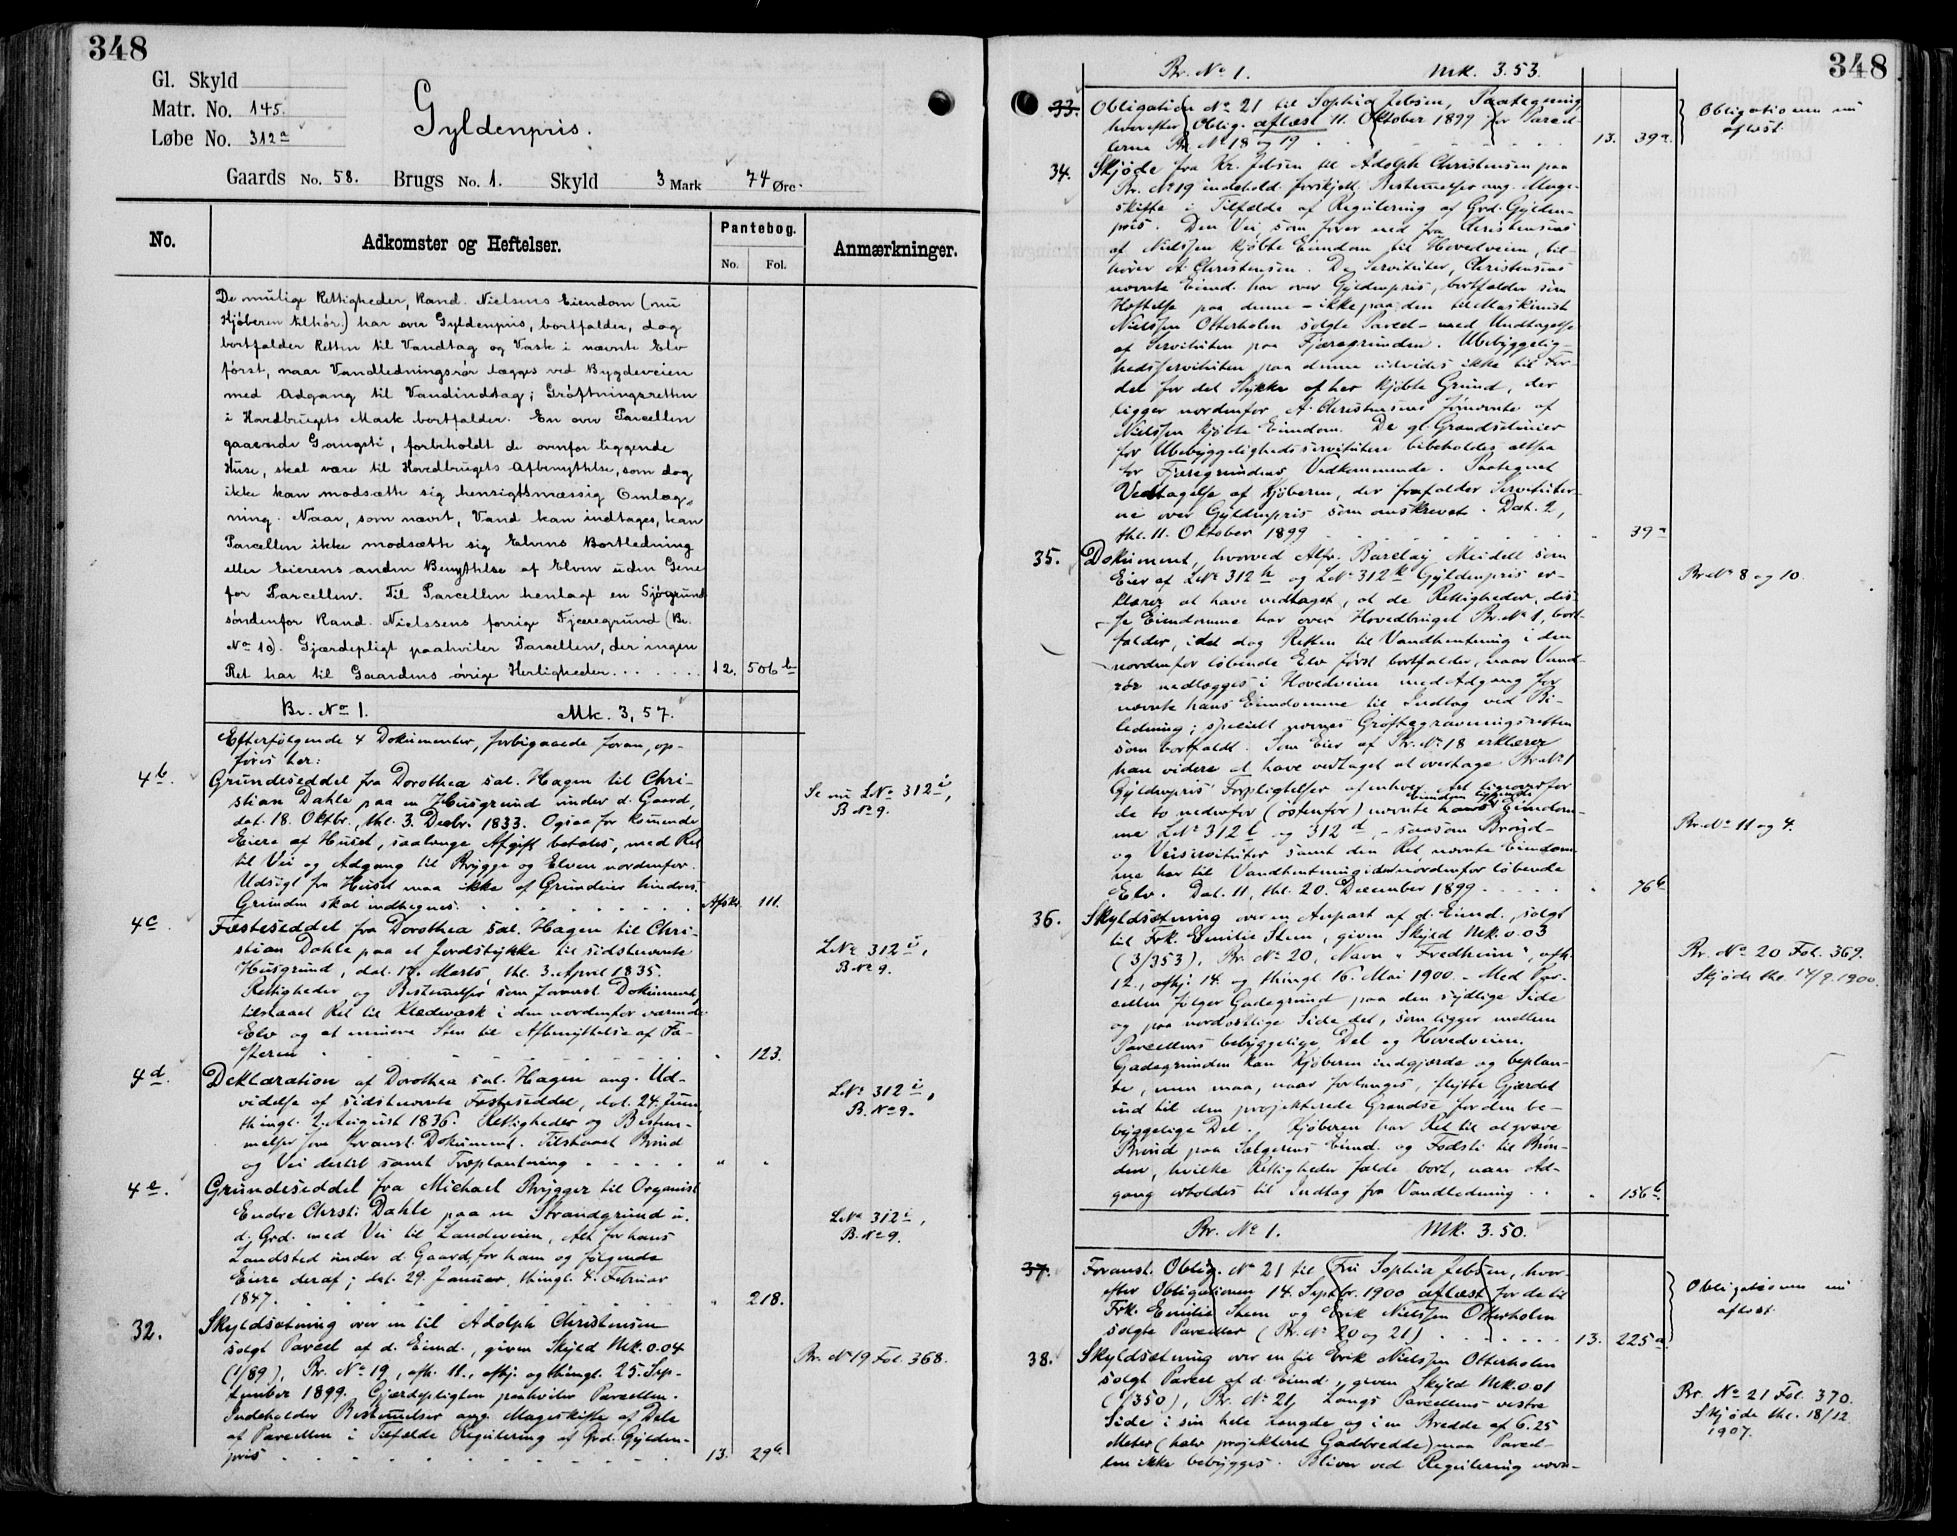 348
Gl. Skyld
Matr. No. 145.
Løbe No. 312a
Gyldenpris.
Gaards No. 58. Brugs No. 1. Skyld 3 Mark 74 Øre.
No. Adkomster og Heftelser. Pantebog. No. Fol. Anmærkninger.
De mulige Rettigheder, Rand. Nielsens Eiendom (nu
Kjøberen tilhør.) har over Gyldenpris, bortfalder, dog
bortfalder Retten til Vandtag og Vask i nævnte Elv
først, naar Vandledningsrør lægges ved Bygdeveien
med Adgang til Vandindtag; Grøftningsretten
i Hovedbrugets Mark bortfalder. En over Parcellen
gaaende Gangsti, forbeholdt de ovenfor liggende
Huse, skal være til Hovedbrugets Afbenyttelse, som dog
ikke kan modsætte sig hensigtsmæssig Omlæg„
ning. Naar, som nævnt, Vand kan indtages, kan
Parcellen ikke modsætte sig Elvens Bortledning
eller Eierens anden Benyttelse af Elven uden Gene
for Parcellen. Til Parcellen henlagt en Sjøgrund
søndenfor Rand. Nielssens forrige Fjæregrund (Br.
No 10). Gjærdepligt paahviler Parcellen, der ingen
Ret har til Gaardens øvrige Herligheder. 12. 506b
Br. No 1. Mk. 3,57.
Efterfølgende 4 Dokumenter, forbigaaede foran, op-
føres her:
4b. Grundeseddel fra Dorothea sal. Hagen til Chri-
stian Dahle paa en Husgrund under d. Gaard,
dat. 18. Oktbr., thl. 3. Decbr. 1833. Ogsaa for kommende
Eiere af Huset, saalænge Afgift betales, med Ret
til Vei og Adgang til Brygge og Elven nordenfor.
Udsigt fra Huset maa ikke af Grundeier hindres.
Grunden skal indhegnes. Afskr. 111.
Se nu LNo 312i,
B No 9.
4c. Fæsteseddel fra Dorothea sal. Hagen til Chri-
stian Dahle paa et Jordstykke til sidstnævnte
Husgrund, dat. 17. Marts, thl. 3. April 1835.
Rettigheder og Bestemmelser som foranst. Dokument,
tilstaaet Ret til Klædevask i den nordenfor værende
Elv og at minere Sten til Afbenyttelse af Fæ-
steren " 123.
LNo 312i,
B No 9.
4d. Deklaration af Dorothea sal. Hagen ang. Ud-
videlse af sidstnævnte Fæsteseddel, dat. 24. Juni,
thingl. 2. August 1836. Rettigheder og Bestem-
melser som foranst. Dokument. Tilstaaet Brønd
og Vei dertil samt Træplantning " "
LNo 312i,
B. No 9.
4e. Grundeseddel fra Michael Brygger til Organist
Endre Chrsti. Dahle paa en Strandgrund u.
d. Grd. med Vei til Landeveien, Alt for hans
Landsted under d. Gaard, for ham og følgende
Eiere deraf; dat. 29. Januar, thingl. 4. Februar
1847. " 218.
LNo 312i,
B. No 9.
32. Skyldsætning over en til Adolph Christensen
solgt Parcel af d. Eiend., given Skyld Mk. 0.04
(1/89), Br. No 19, afh. 11., afhj. og thingl. 25. Sep-
tember 1899. Gjærdepligten paahviler Parcellen.
Indeholder Bestemmelser ang. Mageskifte af Dele
af Parcellen i Tilfælde Regulering af Grd. Gylden-
pris 13. 29b
Br. No 19 Fol. 368.
348
Br. No 1. Mk. 3.53.
33. Obligation No 21 til Sophia Jebsen, Paategning
hvorefter Oblig. aflæst 11. Oktober 1899 for Parcel-
lerne Br No 18 og 19 13. 39a.
Obligationen nu
afløst.
34. Skjøde fra Kr. Jebsen til Adolph Christensen paa
Br. No 19 indehold. forskjell. Bestemmelser ang. Mage-
skifte i Tilfælde af Regulering af Grd. Gylden-
pris. Den Vei, som fører ned fra Christensens
af Nielssen kjøbte Eiendom til Hovedveien, til-
hører A. Christensen. De Servituter, Christensens
nævnte Eiend. har over Gyldenpris, bortfalder som
Heftelse paa denne – ikke paa den til Maskinist
Nielssen Otterholm solgte Parcel – med Undtagelse
af Servituten paa Fjæregrunden. Ubebyggelig-
hedsservituten paa denne udvides ikke til For-
del for det Stykke af her kjøbte Grund, der
ligger nordenfor A. Christensens førnævnte af
Nielssen kjøbte Eiendom. De gl. Grændselinier
for Ubebyggelighedsservituten bibeholdes altsaa
for Fjæregrundens Vedkommende. Paategnet
Vedtagelse af Kjøberen, der frafalder Servituter-
ne over Gyldenpris som omskrevet. Dat. 2,
thl. 11. Oktober 1899 " 39a
35. Dokument, hvorved Alfr. Barclay Meidell som
Eier af LNo 312h og LNo 312k Gyldenpris er-
klærer at have vedtaget, at de Rettigheder, dis-
se Eiendomme har over Hovedbruget Br. No 1, bort-
falder, idet dog Retten til Vandhentning i den
nordenfor løbende Elv først bortfalder, naar Vand-
rør nedlægges i Hovedveien med Adgang for
nævnte hans Eiendomme til Indlag ved Bi-
ledning; specielt nævnes Grøftegravningsretten
som bortfaldt. Som Eier af Br. No 18 erklærer
han videre at have vedtaget at overtage Br. No 1
Gyldenpris Forpligtelser af enhver Art ligeoverfor
de to nedenfor (østenfor) nævnte hans Eiendom liggende Eiendom-
me LNo 312b og 312d, – saasom Brønd-
og Veiservituter samt den Ret, nævnte Eiendom-
me har til Vandhentning i den nordenfor løbende
Elv. Dat. 11, thl. 20. December 1899 " 76b.
Br No 8 og 10.
Br. No 11 og 4.
36. Skyldsætning over en Anpart af d. Eiend., solgt
til Frk. Emilie Stem, given Skyld Mk. 0.03
(3/353), Br. No 20, Navn "Fredheim", afh.
12., afhj. 14. og thingl. 16. Mai 1900. – Med Par-
cellen følger Gadegrund paa den sydlige Side
og paa nordostlige Side det, som ligger mellem
Parcellens bebyggelige Del og Hovedveien.
Gadegrunden kan Kjøberen indgjærde og beplan-
te, men maa, naar forlanges, flytte Gjærdet
ind til den projekterede Grændse for den be-
byggelige Del. Kjøberen har Ret til at grave
Brønd paa Sælgerens Eiend. og Fodsti til Brøn-
den, hvilke Rettigheder falde bort, naar Ad-
gang erholdes til Indtag fra Vandledning " 156b.
Br. No 20 Fol. 369.
Skjøde thl. 17/9. 1900.
Br. No 1. Mk. 3.50.
37. Foranst. Oblig. No 21 til Fru Sophia Jebsen, hvor-
efter Obligationen 14. Septbr. 1900 aflæst for de til
Frk. Emilie Stem og Erik Nielssen Otterholm
solgte Parceller (Br. No 20 og 21) 13. 225a.
Obligationen nu
afløst.
38. Skyldsætning over en til Erik Nielssen Otterholm
solgt Parcel af d. Eiend., given Skyld Mk. 0.01
(1/350), Br. No 21, Langs Parcellens vestre
Side i sin hele Længde og i en Bredde af 6.25
Meter (halv projekteret Gadebredde) maa Parcel-
len ikke bebygges. Bliver ved Regulering nævn-
Br. No 21 Fol. 370.
Skjøde thl. 18/12
1907.